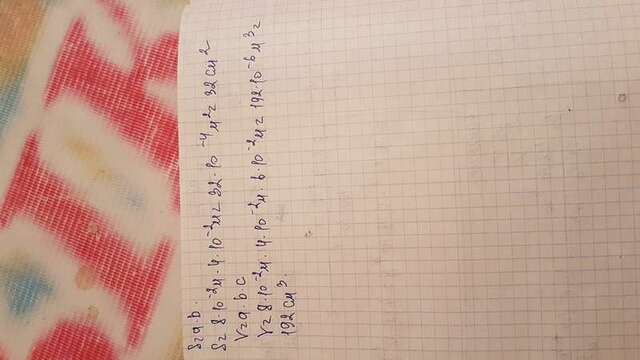 S=a·b.
S= 8·10⁻²м·4·10⁻²м= 32·10⁻⁴м²= 32 см²
V=a·b·c
V= 8·10⁻²м·4·10⁻²м·6·10⁻²м= 192·10⁻⁶м³=
192 см³.